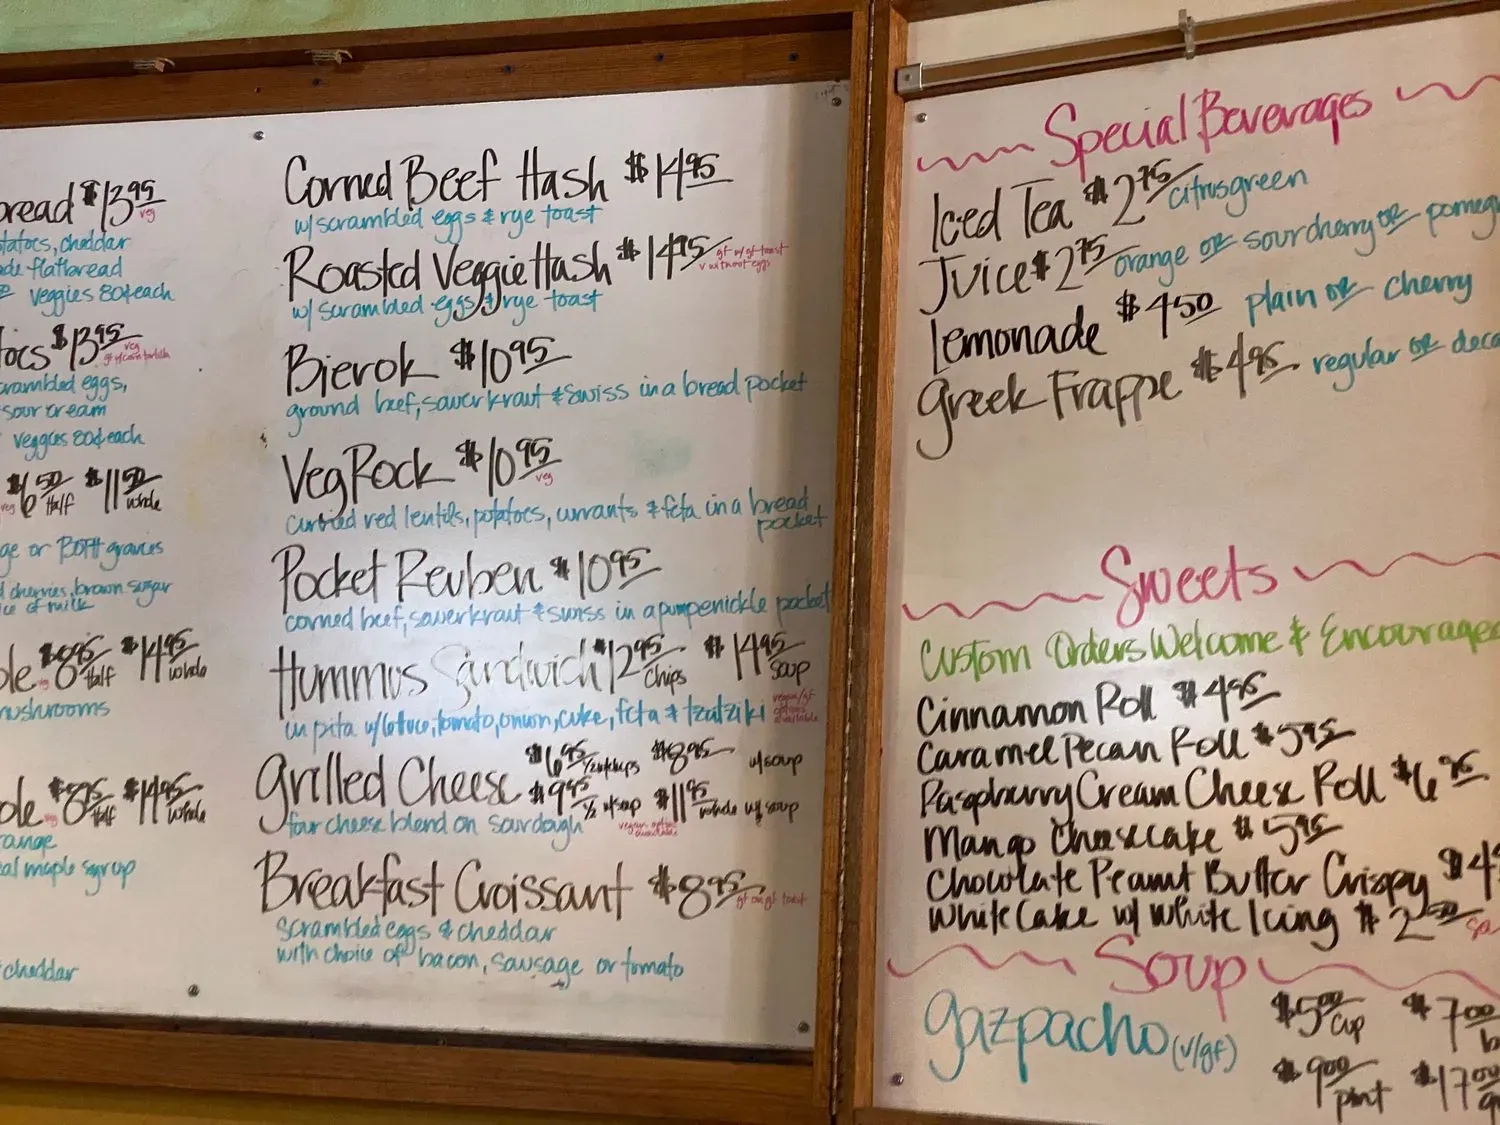 bread $13.95
veg
potatoes, cheddar
flatbread
veggies 80¢ each
$13.95
veg
gf w/ corn tortilla
scrambled eggs,
sour cream
veggies 80¢ each
veg $6.50 Half $11.50 whole
or BOTH gravies
cherries, brown sugar
of milk
$8.95 Half $14.95 whole
mushrooms
$8.95 Half $14.95 whole
orange
real maple syrup
cheddar
Corned Beef Hash $14.95
w/ scrambled eggs & rye toast
Roasted Veggie Hash $14.95
gf w/ gf toast
v without eggs
w/ scrambled eggs & rye toast
Bierok $10.95
ground beef, sauerkraut & swiss in a bread pocket
VegRock $10.95
veg
curried red lentils, potatoes, currants & feta in a bread
pocket
Pocket Reuben $10.95
corned beef, sauerkraut & swiss in a pumpernickle pocket
Hummus Sandwich $12.95 chips $14.95 soup
in pita w/ lettuce, tomato, onion, cuke, feta & tzatziki
vegan/gf
options
available
Grilled Cheese $6.95 1/2 w/ chips $8.95 w/ soup
$9.95 1/2 w/ soup $11.95 whole w/ soup
four cheese blend on sourdough
vegan option
available
Breakfast Croissant $8.95
gf on gf toast
scrambled eggs & cheddar
with choice of bacon, sausage or tomato
Special Beverages
Iced Tea $2.75 citrus green
Juice $2.75 orange or sour cherry or
Lemonade $4.50 plain or cherry
Greek Frappe $4.95 regular or
Sweets
Custom Orders Welcome & Encouraged
Cinnamon Roll $4.95
Caramel Pecan Roll $5.95
Raspberry Cream Cheese Roll $6.95
Mango Cheesecake $5.95
Chocolate Peanut Butter Crispy $4
White Cake w/ White Icing $2.50
Soup
gazpacho (v/gf)
$5.00 cup $7.00
$9.00 pint $17.00